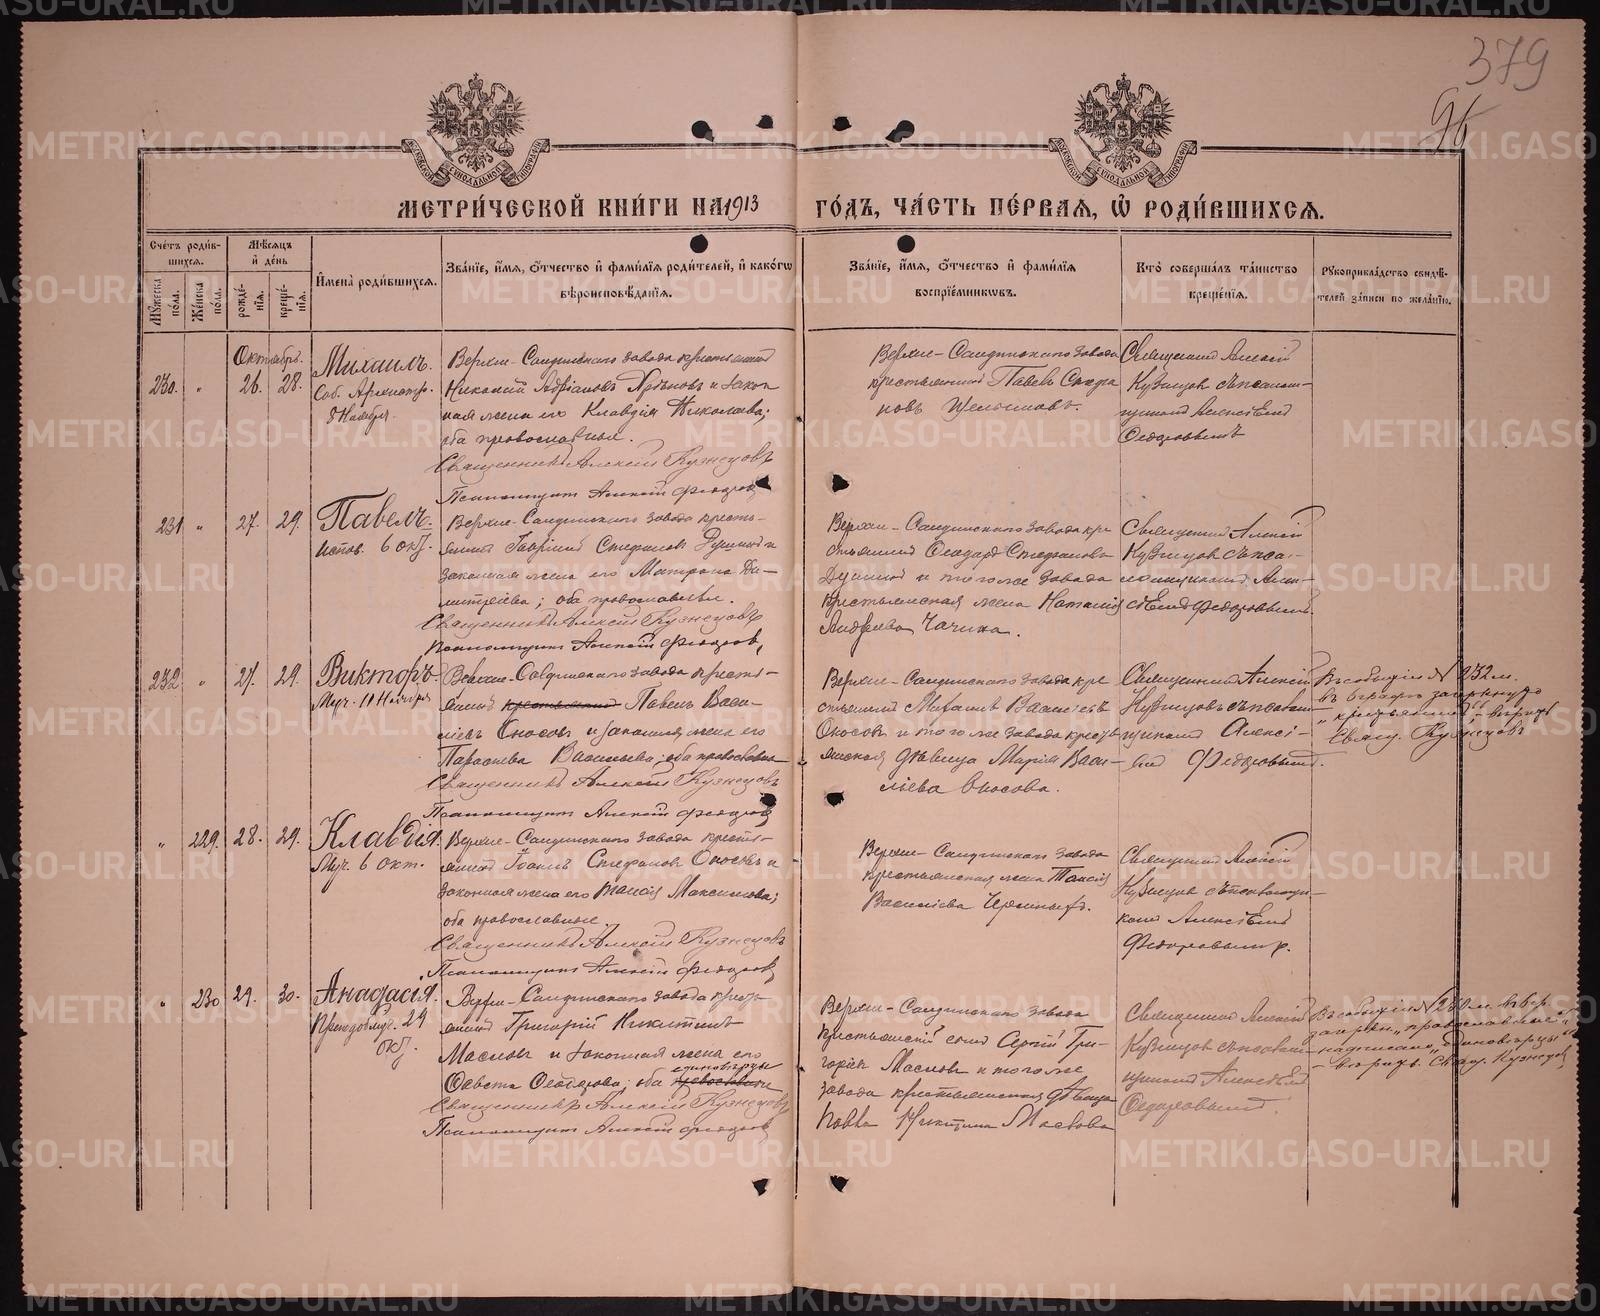 379
96
МЕТРИ́ЧЕСКОЙ КНИ́ГИ НА 1913 ГО́ДЪ, ЧА́СТЬ ПЕ́РВАЯ, Ѡ҆ РОДИ́ВШИХСЯ.
Сче́тъ роди́в-
шихся.
Мꙋ́жеска по́ла.
Же́нска по́ла.
Мѣ́сяцъ
и҆ де́нь
рожде́-
нїя.
креще́-
нїя.
И҆мена̀ роди́вшихся.
Зва́нїе, и҆́мя, ѻ҆́тчество и҆ фами́лїя роди́телей, и҆ како́гѡ
вѣроисповѣ́данїя.
Зва́нїе, и҆́мя, ѻ҆́тчество и҆ фами́лїя
воспрїе́мникѡвъ.
Кто̀ соверша́лъ та́инство
креще́нїя.
Рꙋкоприкла́дство свидѣ́-
телей за́писи по жела́нїю.
Октябрь.
230. " 26. 28.
Михаилъ.
Соб. Архистр.
8 Ноября
Верхне-Салдинскаго завода крестьянинъ
Никола́й и закон
ная жена его Клавдія Николаева;
оба православные.
Священникъ Алексій Кузнецовъ
Псаломщикъ Алексій Федоровъ
Верхне-Салдинскаго завода
крестьянинъ Павелъ
Священникъ Алексій
Кузнецовъ съ псалом-
щикомъ Алексѣемъ
Федоровымъ
231 " 27. 29.
Павелъ.
Испов. 6 окт.
Верхне-Салдинскаго завода кресть-
янинъ Георгій Стефановъ и
законная жена его Матрона Ди-
митріева; оба православные.
Священникъ Алексій Кузнецовъ
Псаломщикъ Алексій Федоровъ
Верхне-Салдинскаго завода кре
стьянинъ Стефановъ
и того же завода
крестьянская жена Наталія
Андреева
Священникъ Алексій
Кузнецовъ съ псал-
омщикомъ Алек-
сѣемъ Федоровымъ.
232 " 27. 29.
Викторъ.
Муч. 11 Ноября
Верхне-Салдинскаго завода кресть-
янинъ крестьянинъ Павелъ Васи-
ліевъ Оносовъ и законная жена его
Параскева Васильева; оба православные
Священникъ Алексій Кузнецовъ
Псаломщикъ Алексій Федоровъ
Верхне-Салдинскаго завода кре
стьянинъ Васильевъ
Оносовъ и того же завода кресть
янская дѣвица Марія Васи-
льева Оносова.
Священникъ Алексій
Кузнецовъ съ псалом
щикомъ Алексі-
емъ Федоровымъ.
Въ событіи № 232 м.
въ 4 графѣ зачеркнуто
„крестьянинъ", – вѣрно
Свящ. Кузнецовъ
" 229. 28. 29.
Клавдія.
Муч. 6 Окт.
Верхне-Салдинскаго завода кресть-
янинъ Іоаннъ Стефановъ Оносовъ и
законная жена его Таисія Максимова;
оба православные.
Священникъ Алексій Кузнецовъ
Псаломщикъ Алексій Федоровъ
Верхне-Салдинскаго завода
крестьянская жена Таисія
Васильева
Священникъ Алексій
Кузнецовъ съ псаломщи-
комъ Алексѣемъ
Федоровымъ.
" 230 29. 30.
Анастасія.
Преподобмуч. 29
окт.
Верхне-Салдинскаго завода кресть-
янинъ Григорій Никитинъ
Масловъ и законная жена его
единовѣрцы
Ѳеодорова; оба православные
Священникъ Алексій Кузнецовъ
Псаломщикъ Алексій Федоровъ
Верхне-Салдинскаго завода
крестьянскій сынъ Сергій Гри-
горіевъ Масловъ и того же
завода крестьянская дѣвица
Никитина Маслова
Священникъ Алексій
Кузнецовъ съ псалом-
щикомъ Алексѣемъ
Федоровымъ.
Въ событіи № 230 ж. въ 4 гр.
зачеркн. „православные" и
надписано „единовѣрцы" –
вѣрно. Свящ. Кузнецовъ
METRIKI.GASO-URAL.RU